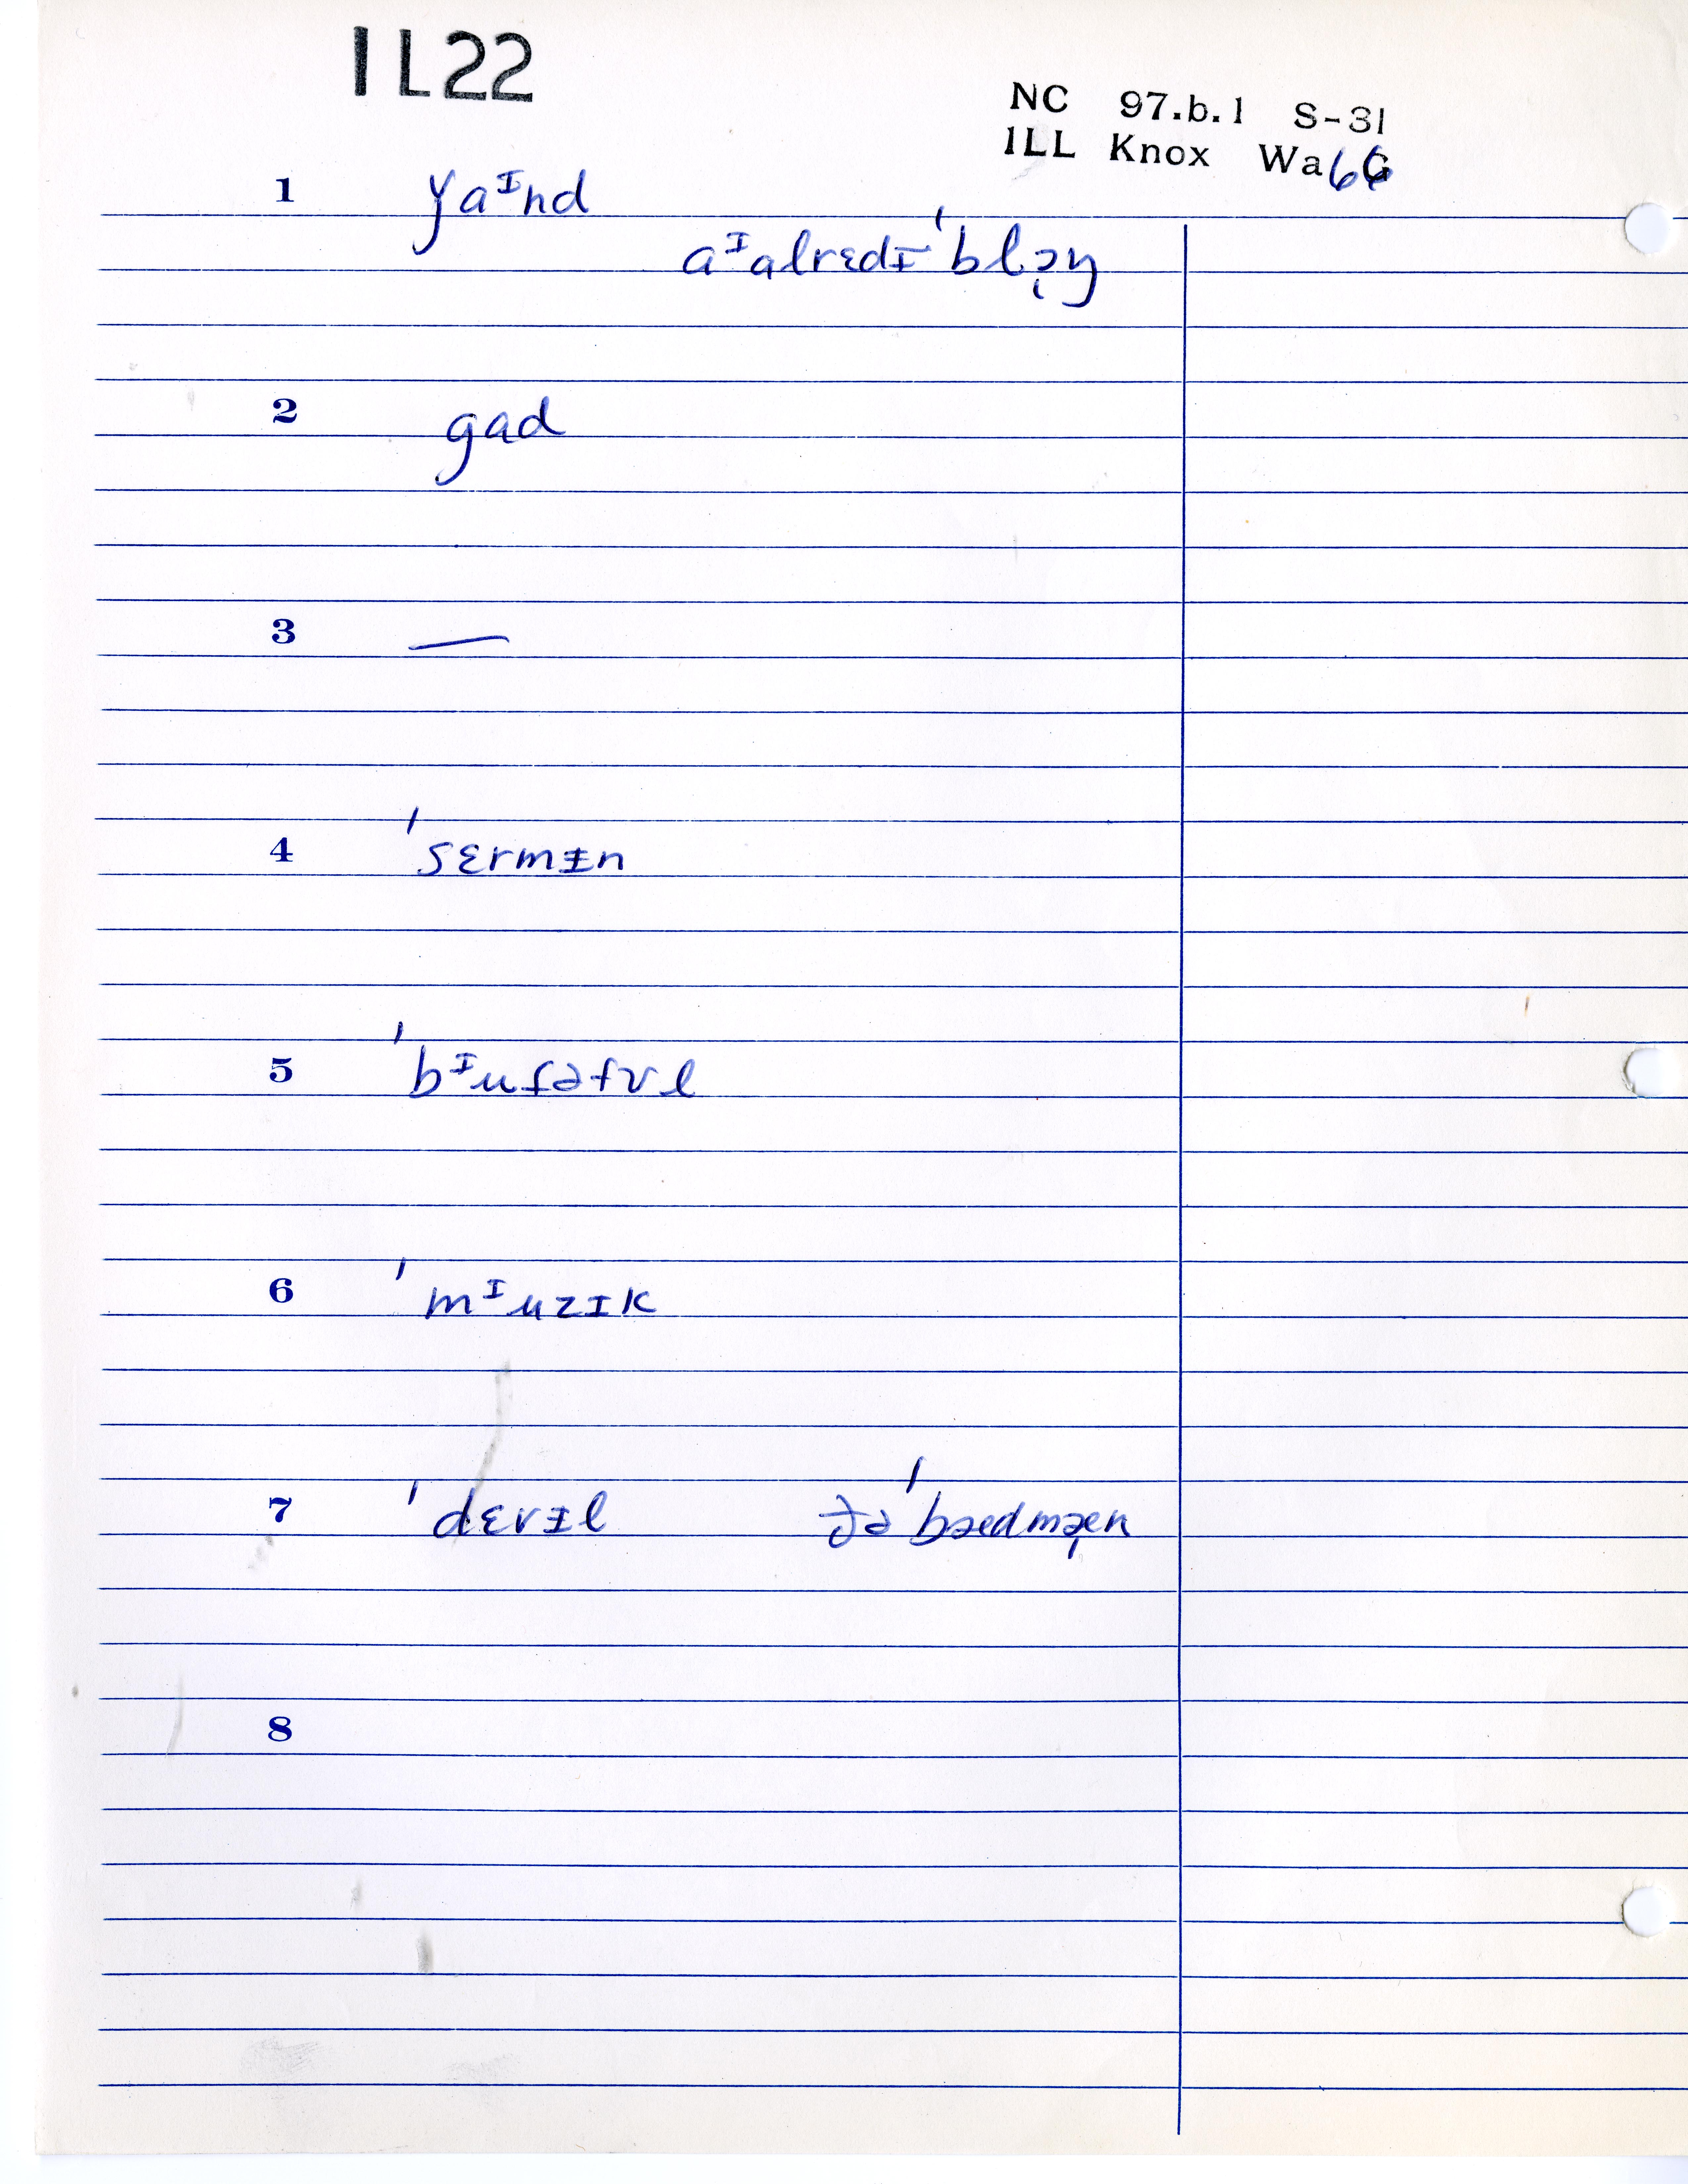 IL22
NC 97.b.1 S-31
ILL Knox Wa66
1 ɣaᴵnd
aᴵalrɛdɪ ˈblɔŋ
2 gad
3 —
4 ˈsɛrmɨn
5 ˈbᴵuɾəfʊl
6 ˈmᴵuzɪk
7 ˈdɛvɨl ðə ˈbædmæn
8